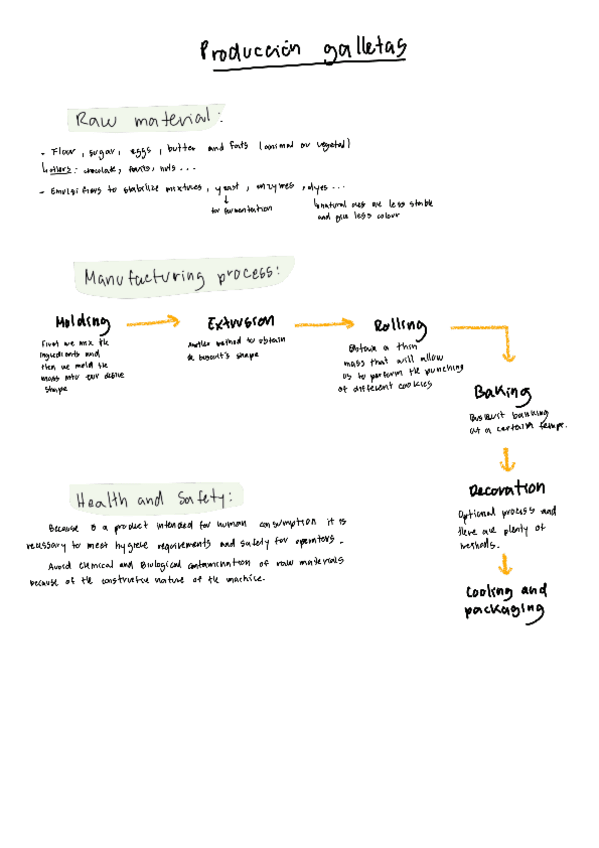 Producción galletas
Raw material:
- Flour, sugar, eggs, butter and fats (animal or vegetal)
others: chocolate, fruits, nuts ...
- Emulsifiers to stabilize mixtures, yeast, enzymes, dyes ...
for fermentation
natural ones are less stable
and give less colour
Manufacturing process:
Molding
First we mix the
ingredients and
then we mold the
mass into our desire
shape
Extrusion
Another method to obtain
de biscuit's shape
Rolling
Obtain a thin
mass that will allow
us to perform the punching
of different cookies
Baking
Biscuit banking
at a certain temps.
Decoration
Optional process and
there are plenty of
methods.
Cooling and
packaging
Health and Safety:
Because is a product intended for human consumption it is
necessary to meet hygiene requirements and safety for operators.
Avoid chemical and Biological contamination of raw materials
because of the constructive nature of the machine.